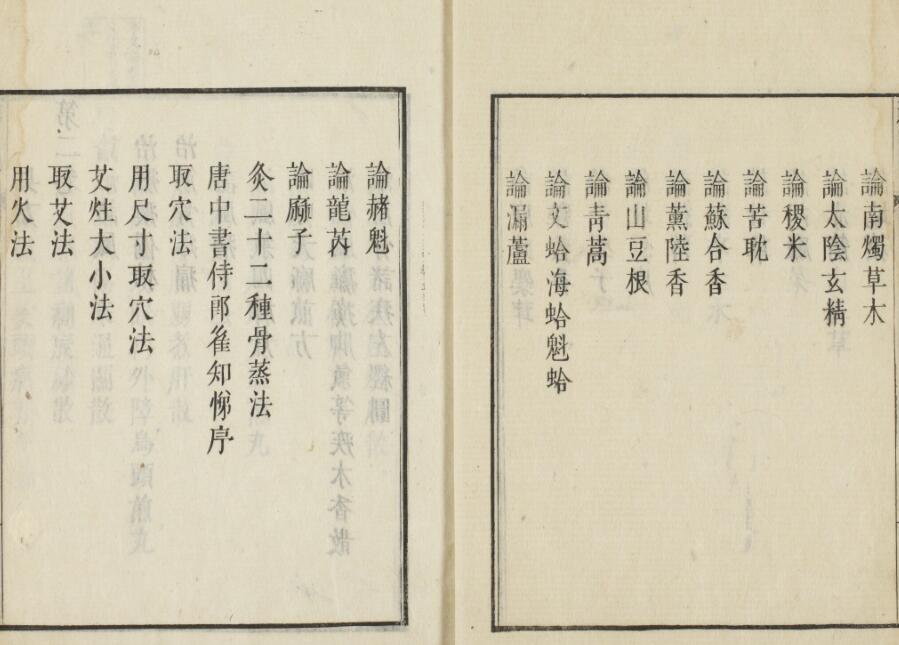 論南燭草木
論太陰玄精
論稷米
論苦耽
論蘇合香
論薰陸香
論山豆根
論青蒿
論文蛤海蛤魁蛤
論漏蘆
論赭魁
論龍芮
論麻子
灸二十二種骨蒸法
唐中書侍郎崔知悌序
取穴法
用尺寸取穴法
艾炷大小法
取艾法
用火法